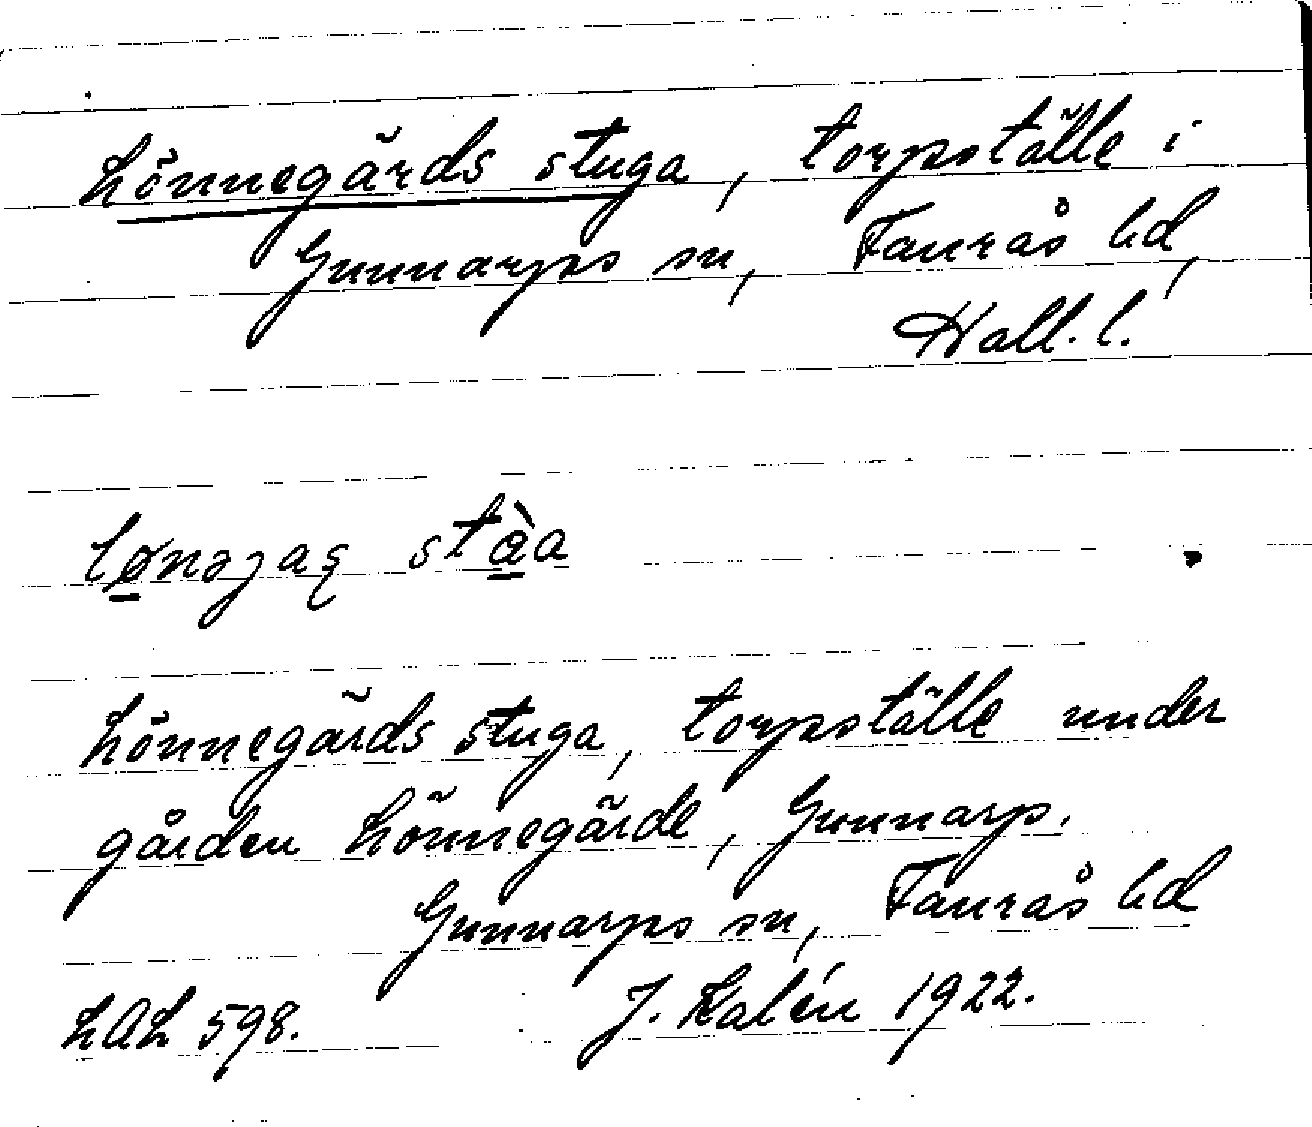 Lönnegärds stuga, torpställe i
Gunnarps sn, Faurås hd,
Hall. l.
lønəjaʂ stàa
Lönnegärds stuga, torpställe under
gården Lönnegärde, Gunnarp.
Gunnarps sn, Faurås hd
LAL 598. J. Kalén 1922.